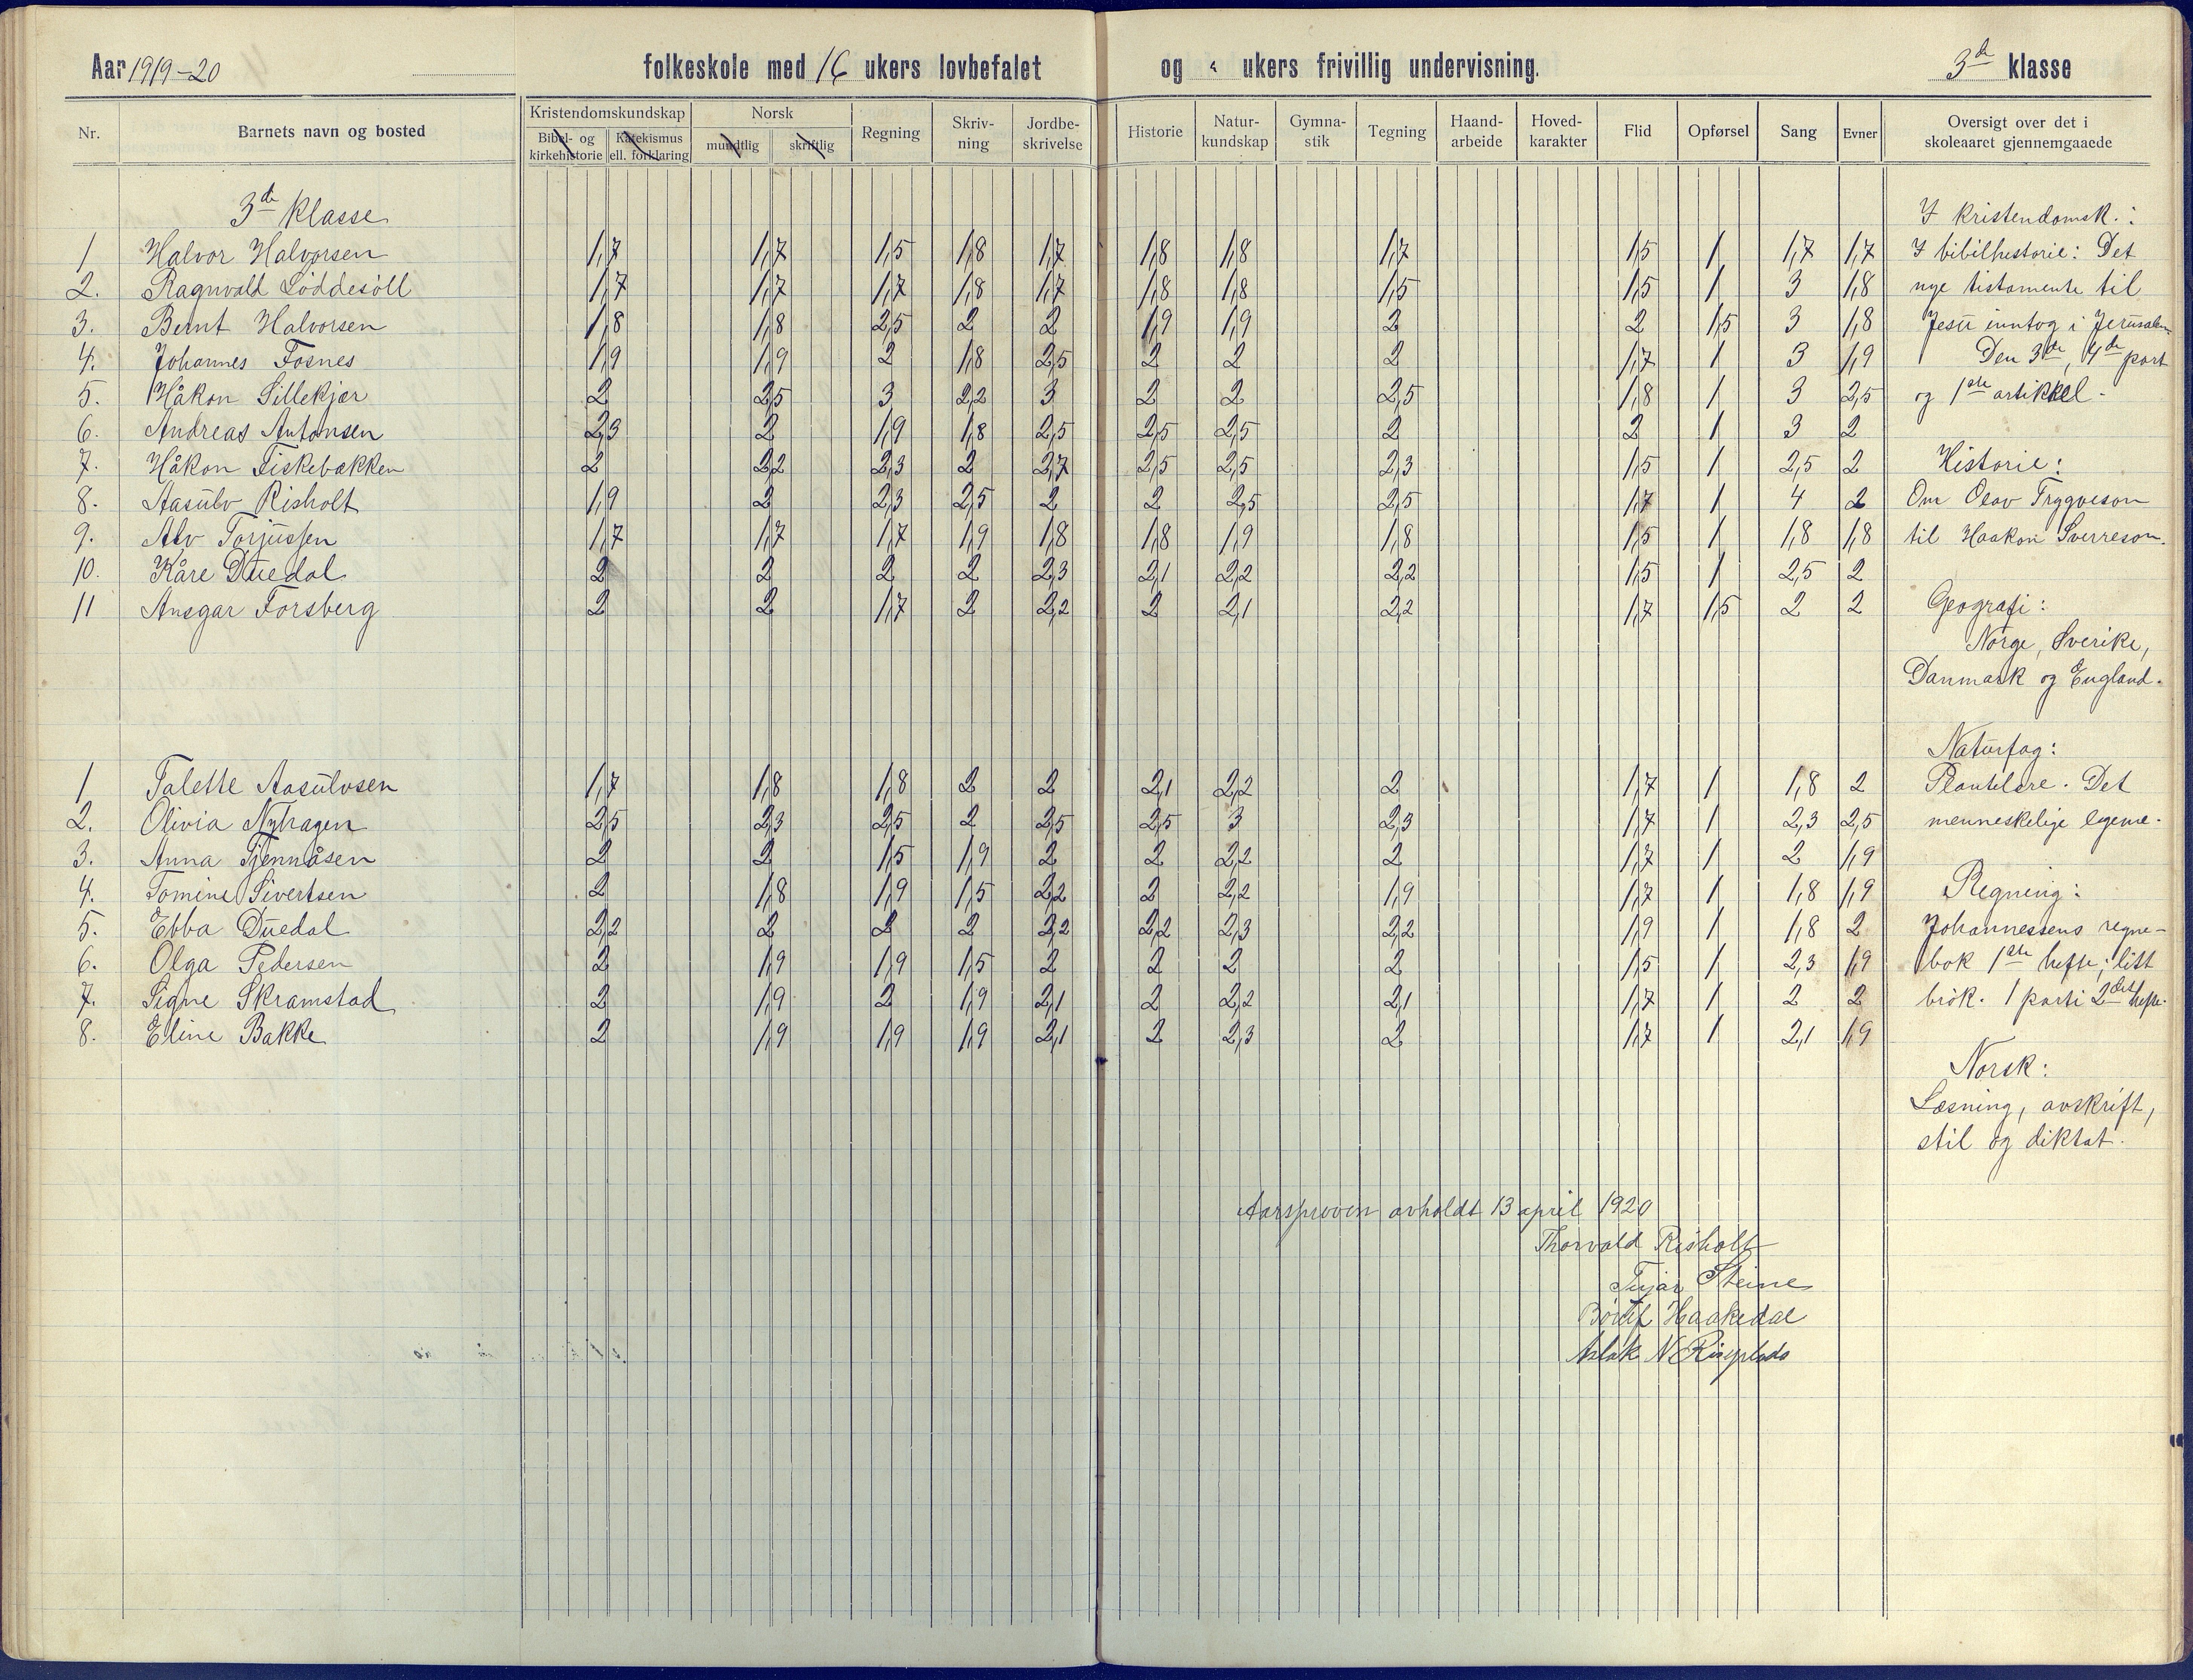 Aar 1919-20 folkeskole med 16 ukers lovbefalet og ukers frivillig undervisning. 3de klasse
Nr. Barnets navn og bosted Kristendomskundskap Bibel- og kirkehistorie Katekismus ell. forklaring Norsk mundtlig skriftlig Regning Skriv-ning Jordbe-skrivelse Historie Natur-kundskap Gymna-stik Tegning Haand-arbeide Hoved-karakter Flid Opførsel Sang Evner Oversigt over det i skoleaaret gjennemgaaede
3de klasse
1 Halvor Halvorsen 1,7 1,7 1,5 1,8 1,7 1,8 1,8 1,7 1,5 1 1,7 1,7
2. Ragnvald Löddesöll 1,7 1,7 1,7 1,8 1,7 1,8 1,8 1,5 1,5 1 3 1,8
3. Bernt Halvorsen 1,8 1,8 2,5 2 2 1,9 1,9 2 2 1,5 3 1,8
4. Johannes Fosnes 1,9 1,9 2 1,8 2,5 2 2 2 1,7 1 3 1,9
5. Håkon Lillekjær 2 2,5 3 2,2 3 2 2 2,5 1,8 1 3 2,5
6. Andreas Antonsen 2,3 2 1,9 1,8 2,5 2,5 2,5 2 2 1 3 2
7. Håkon Fiskebækken 2 2,2 2,3 2 2,7 2,5 2,5 2,3 1,5 1 2,5 2
8. Aasulv Risholt 1,9 2 2,3 2,5 2 2 2,5 2,5 1,7 1 4 2
9. Alv Torjussen 1,7 1,7 1,7 1,9 1,8 1,8 1,9 1,8 1,5 1 1,8 1,8
10. Kåre Duedal 2 2 2 2 2,3 2,1 2,2 2,2 1,5 1 2,5 2
11 Ansgar Forsberg 2 2 1,7 2 2,2 2 2,1 2,2 1,7 1,5 2 2
1 Talette Aasulvsen 1,7 1,8 1,8 2 2 2,1 2,2 2 1,7 1 1,8 2
2. Olivia Nyhagen 2,5 2,3 2,5 2 2,5 2,5 3 2,3 1,7 1 2,3 2,5
3. Anna Tjennåsen 2 2 1,5 1,9 2 2 2,2 2 1,7 1 2 1,9
4. Tomine Sivertsen 2 1,8 1,9 1,5 2,2 2 2,2 1,9 1,7 1 1,8 1,9
5. Ebba Duedal 2,2 2 2 2 2,2 2,2 2,3 2,2 1,9 1 1,8 2
6. Olga Pedersen 2 1,9 1,9 1,5 2 2 2 2 1,5 1 2,3 1,9
7. Signe Skramstad 2 1,9 2 1,9 2,1 2 2,2 2,1 1,7 1 2 2
8. Eline Bakke 2 1,9 1,9 1,9 2,1 2 2,3 2 1,7 1 2,1 1,9
I kristendomsk.:
I bibilhistorie: Det
nye tistamente til
Jesu inntog i Jerusalem
Den 3de, 4de part
og 1ste artikkel.
Historie:
Om Olav Tryggveson
til Haakon Sverreson.
Geografi:
Norge, Sverike,
Danmark og England.
Naturfag:
Plantelære. Det
menneskelige legeme.
Regning:
Johannessens regne-
bok 1ste hefte; litt
brök. 1 part i 2det hefte.
Norsk:
Læsning, avskrift,
stil og diktat.
Aarsprøven avholdt 13 april 1920
Thorvald Risholt
Steine
Haakedal
Aslak N Riseplads